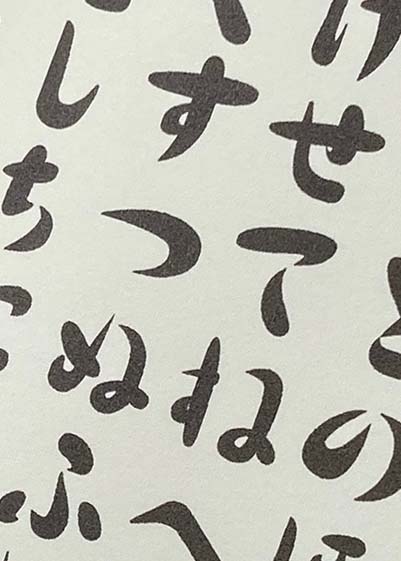 く け
し す せ
ち つ て と
に ぬ ね の
ふ へ ほ